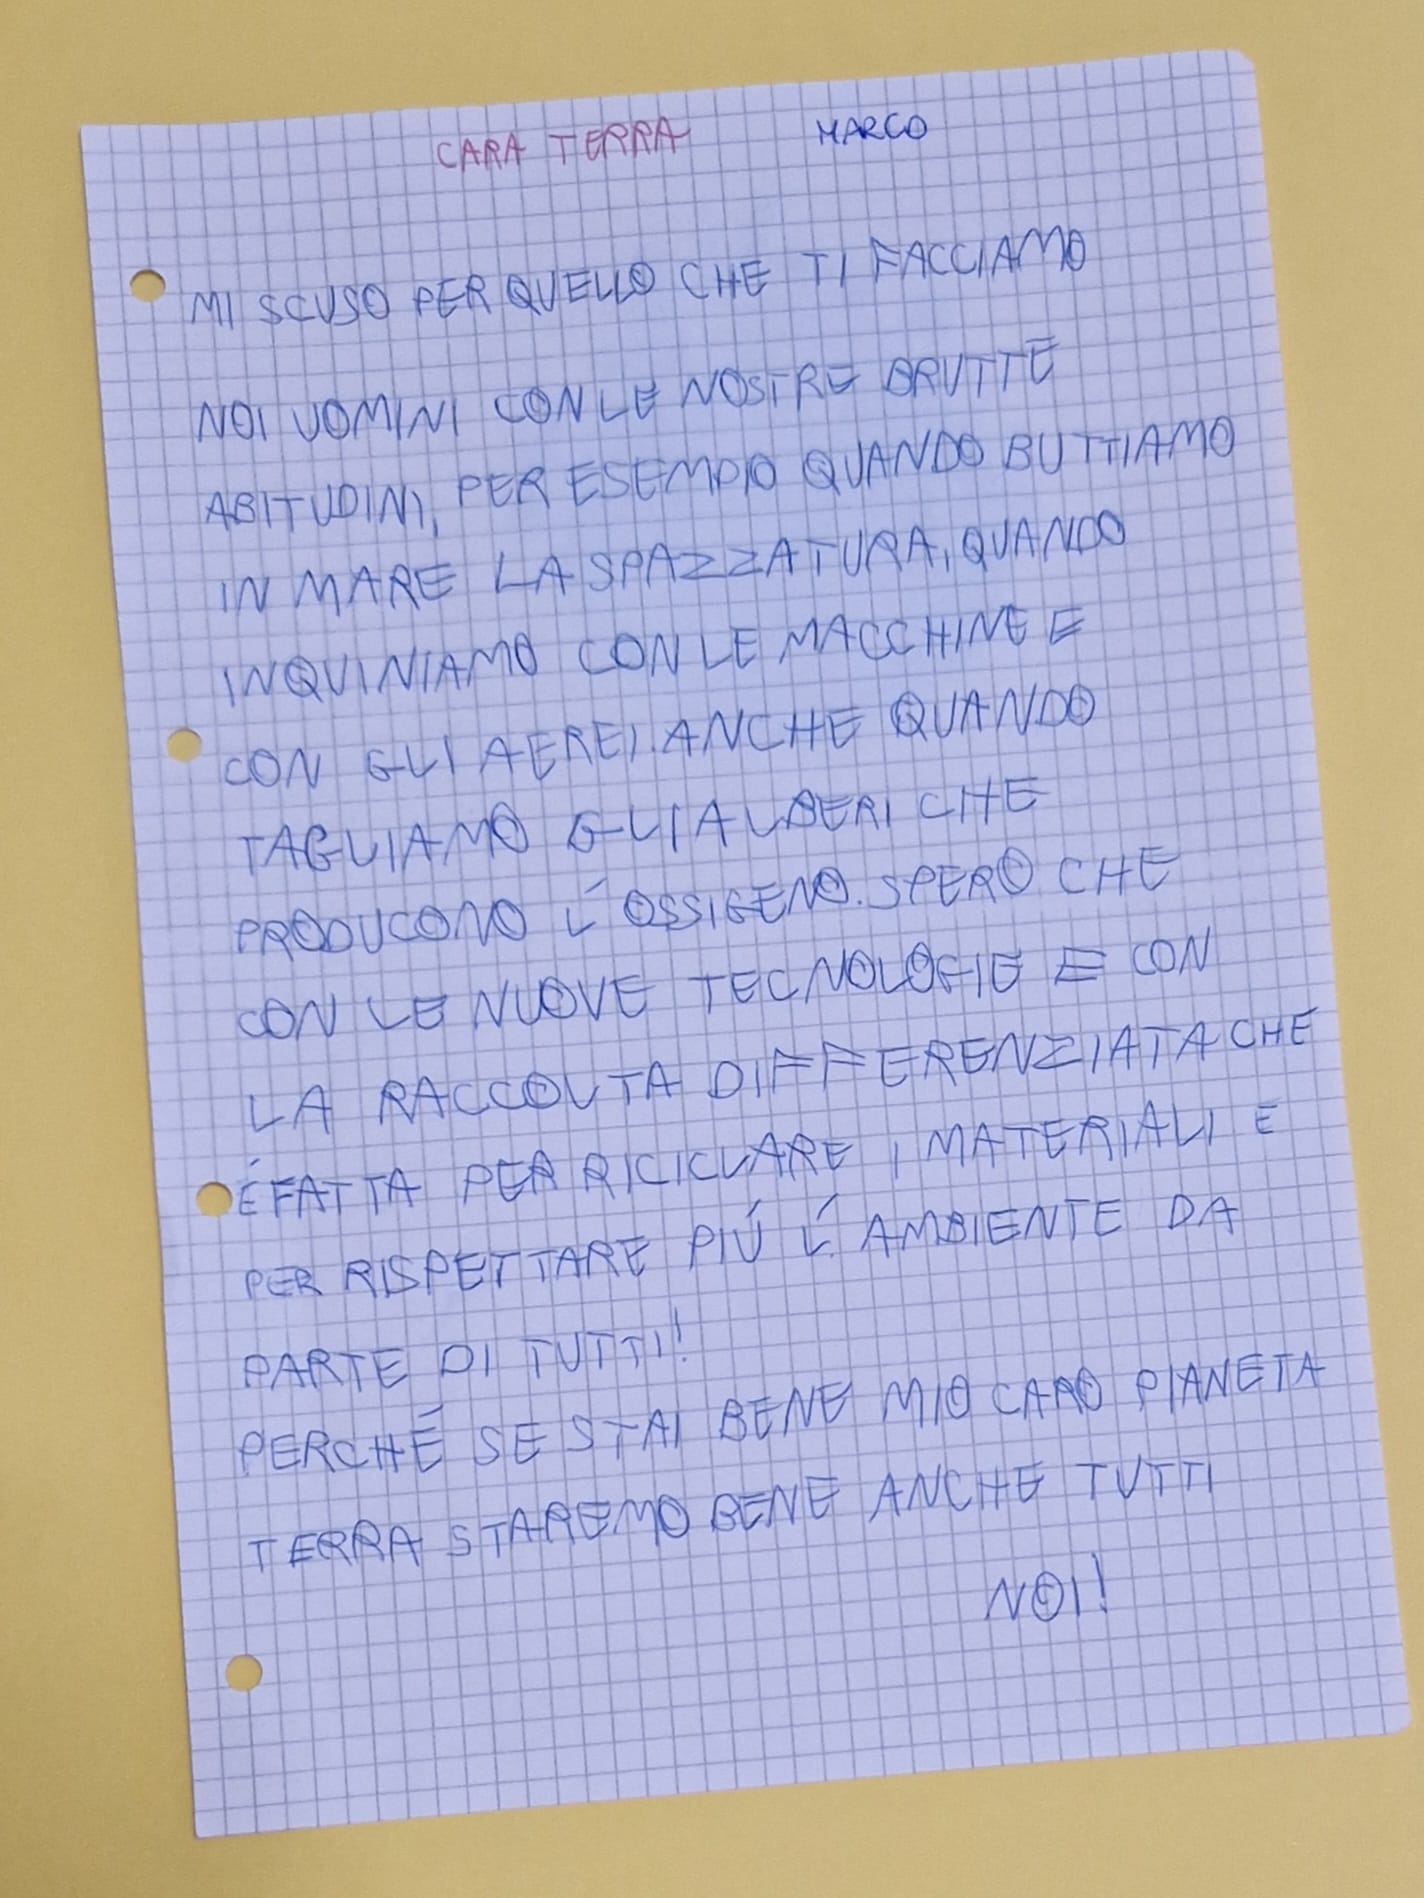 CARA TERRA MARCO
MI SCUSO PER QUELLO CHE TI FACCIAMO
NOI UOMINI CON LE NOSTRE BRUTTE
ABITUDINI, PER ESEMPIO QUANDO BUTTIAMO
IN MARE LA SPAZZATURA, QUANDO
INQUINIAMO CON LE MACCHINE E
CON GLI AEREI. ANCHE QUANDO
TAGLIAMO GLI ALBERI CHE
PRODUCONO L'OSSIGENO. SPERO CHE
CON LE NUOVE TECNOLOGIE E CON
LA RACCOLTA DIFFERENZIATA CHE
É FATTA PER RICICLARE I MATERIALI E
PER RISPETTARE PIÚ L'AMBIENTE DA
PARTE DI TUTTI!
PERCHÉ SE STAI BENE MIO CARO PIANETA
TERRA STAREMO BENE ANCHE TUTTI
NOI!